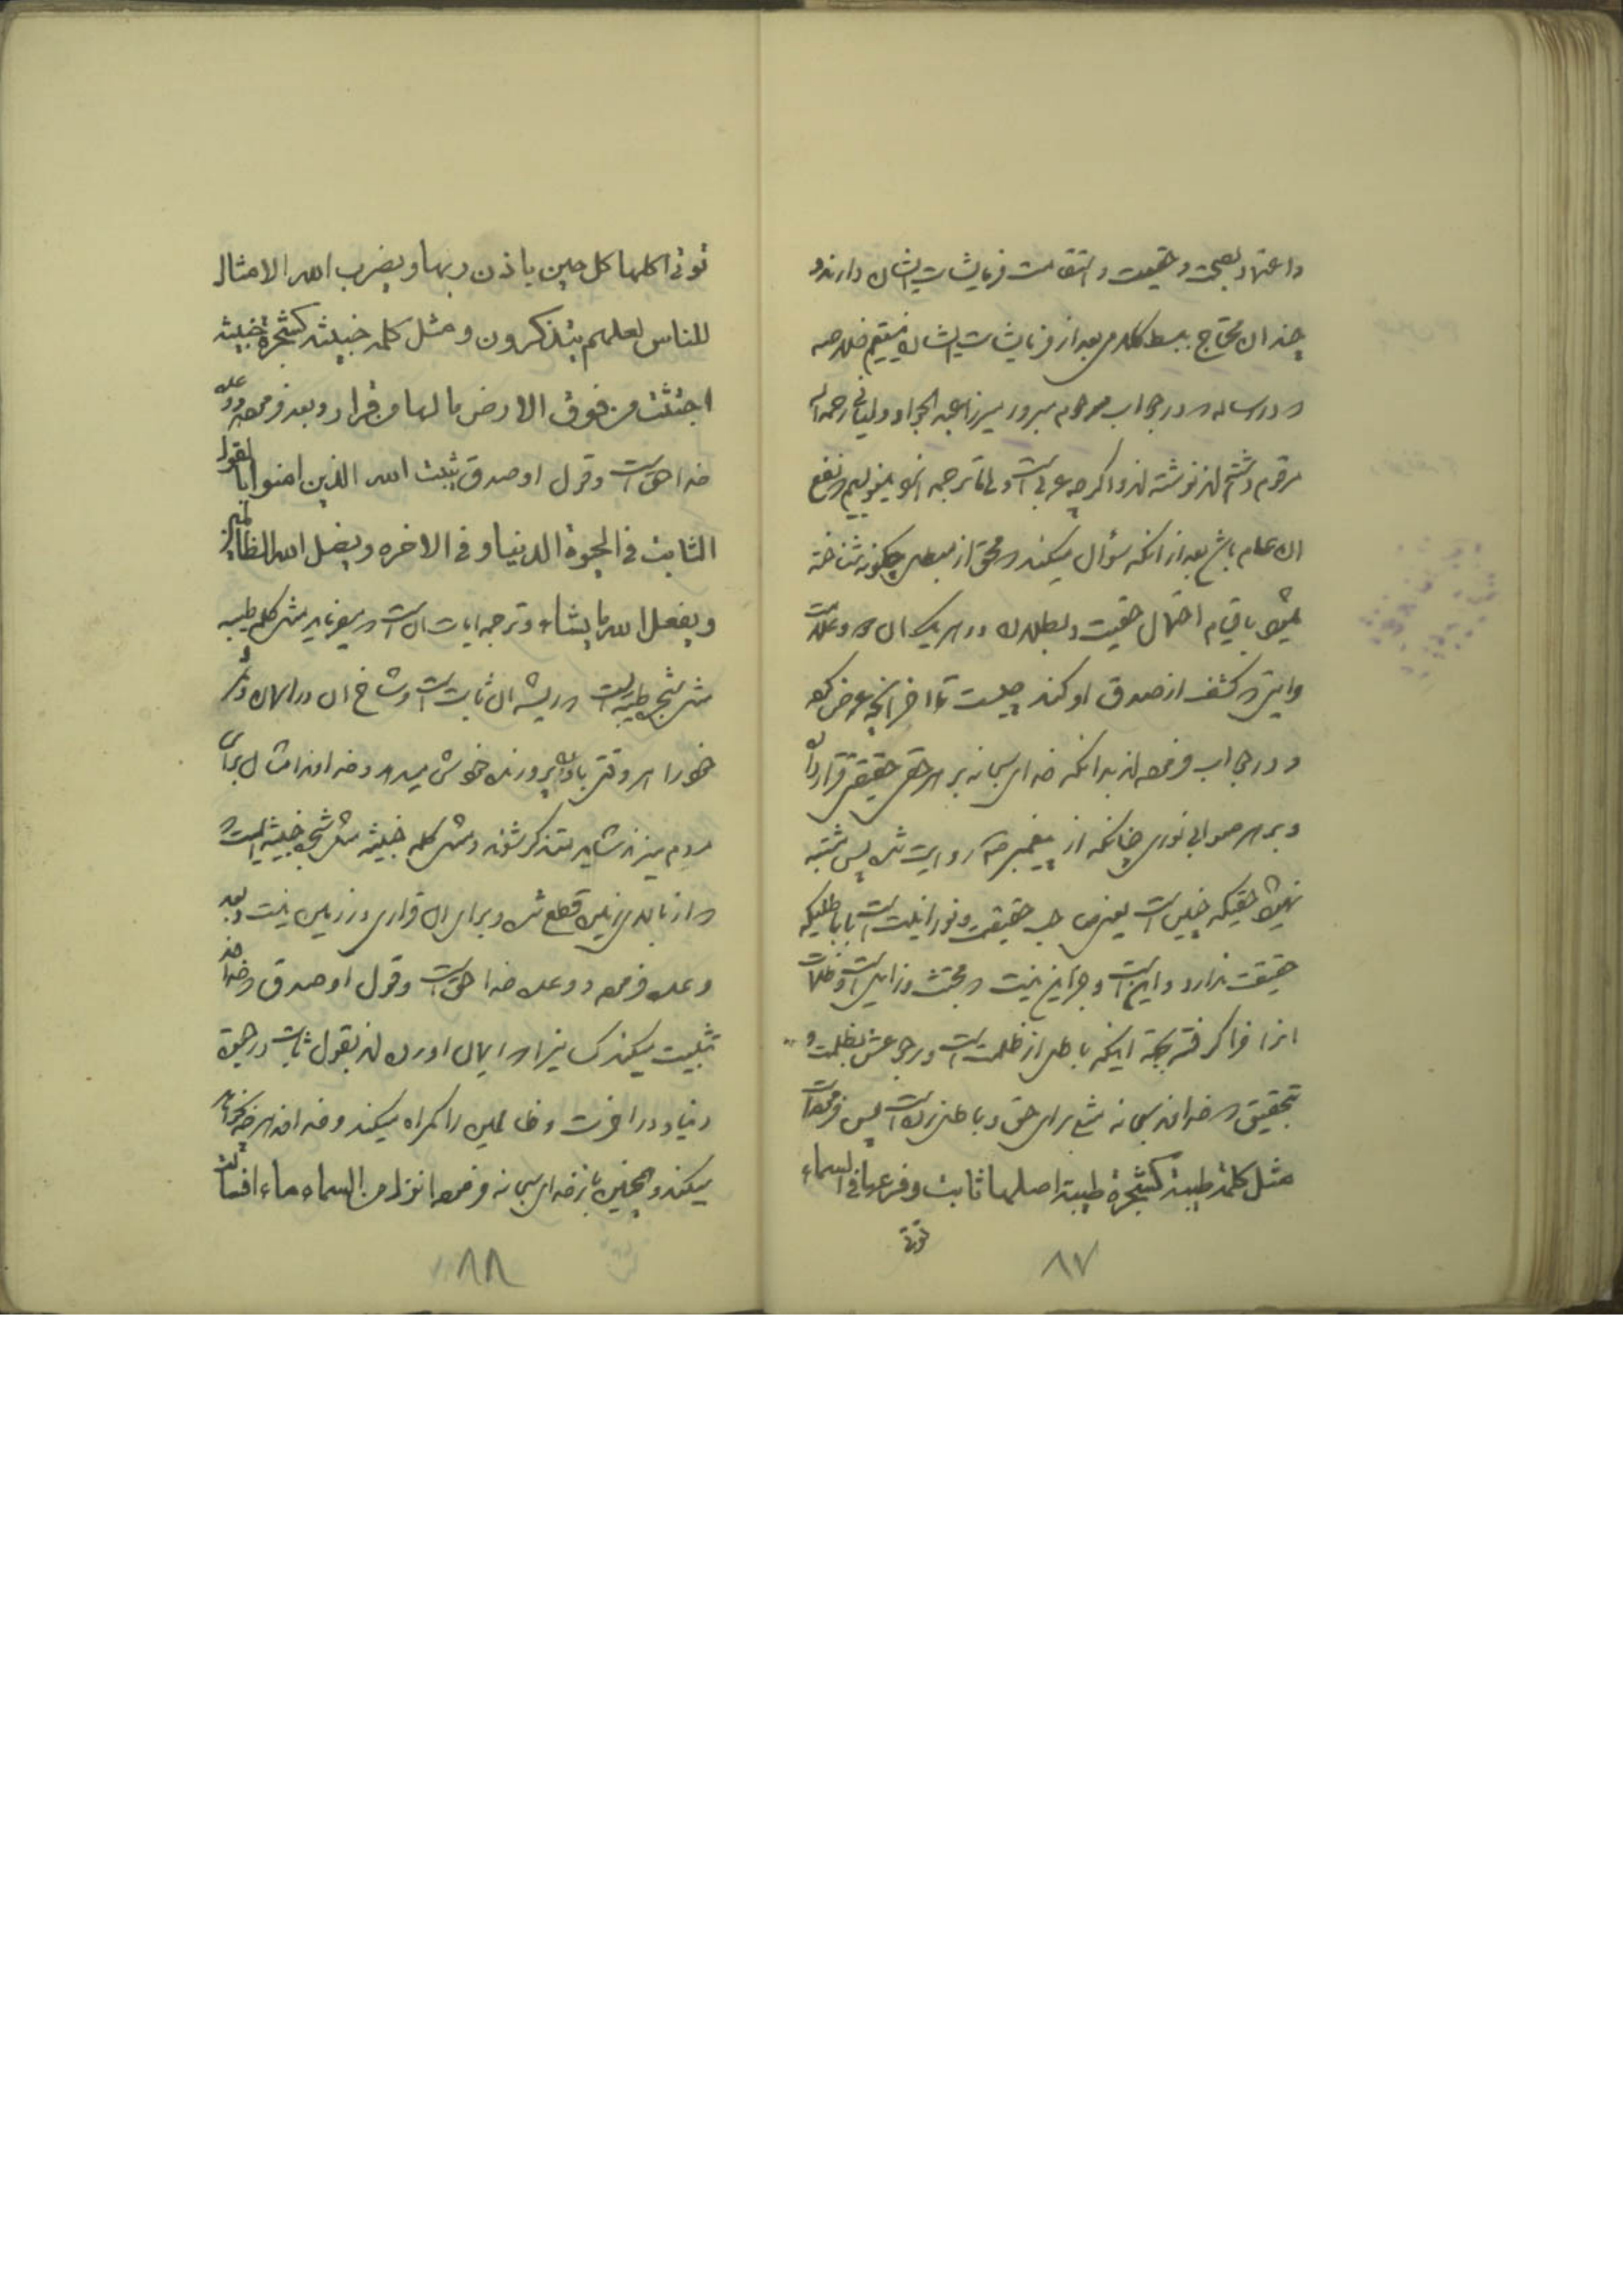 و اعتماد بصحت و حقیقت و استقامت فرمایشات ایشان دارند و
چندان محتاج ببسط کلام بعد از فرمایشات ایشان نیستیم خلاصه
در رساله که در جواب مرحوم مبرور میرزا عبد الجواد رحمه الله
مرقوم داشته اند نوشته اند و اگر چه عربی است ولی ما ترجمه انرا مینویسیم که نفع
ان عام باشد بعد از انکه سؤال میکند که محق از مبطل چگونه شناخته
میشود با قیام احتمال حقیت و بطلان در هر یک از و علامت
و ایتی که کشف از صدق او کند چیست تا اخر انچه عرض کرده
و در جواب فرموده اند بدانکه خدای سبحانه بر هر حقی حقیقتی قرار داده
و بر هر صوابی نوری چنانکه از پیغمبر ص روایت شده پس مشتبه
نمیشود حقیکه چنین است یعنی صاحب حقیقت و نورانیت است با باطلیکه
حقیقت ندارد و این است و جز این نیست که مجتث و زایل است و ظلمات
انرا فرا گرفته بجهة اینکه باطل از ظلمت است و رجوعش بظلمت و
بتحقیق که خداوند سبحانه مثلی برای حق و باطل زده است پس فرموده است
مثل کلمة طیبة کشجرة طیبة اصلها ثابت و فرعها فی السماء
تؤتی
۸۷
تؤتی اکلها کل حین باذن ربها و یضرب الله الامثال
للناس لعلهم یتذکرون و مثل کلمة خبیثة کشجرة خبیثة
اجتثت من فوق الارض ما لها من قرار و بعد فرموده و وعده
خدا حق است و قول او صدق یثبت الله الذین امنوا بالقول
الثابت فی الحیوة الدنیا و فی الاخره و یضل الله الظالمین
و یفعل الله ما یشاء و ترجمه ایات ان است که میفرماید مثل کلمه طیبه
مثل شجره طیبه است که ریشه ان ثابت است و شاخ ان در اسمان و
خورا هر وقتی باذن پرورنده خویش میدهد و خداوند امثال برای
مردم میزند شاید متذکر شوند و مثل کلمه خبیثه مثل شجره خبیثه است
که از بالای زمین قطع شده و برای ان قراری در زمین نیست و بعد
وعده فرموده و وعده خدا حق است و قول او صدق که خداوند
تثبیت میکند کسانیرا که ایمان اورده اند بقول ثابت در حیوة
دنیا و در اخرت و ظالمین را گمراه میکند و خداوند هر چه بخواهد
میکند و همچنین باز خدای سبحانه فرموده انزل من السماء ماء فسالت
۸۸